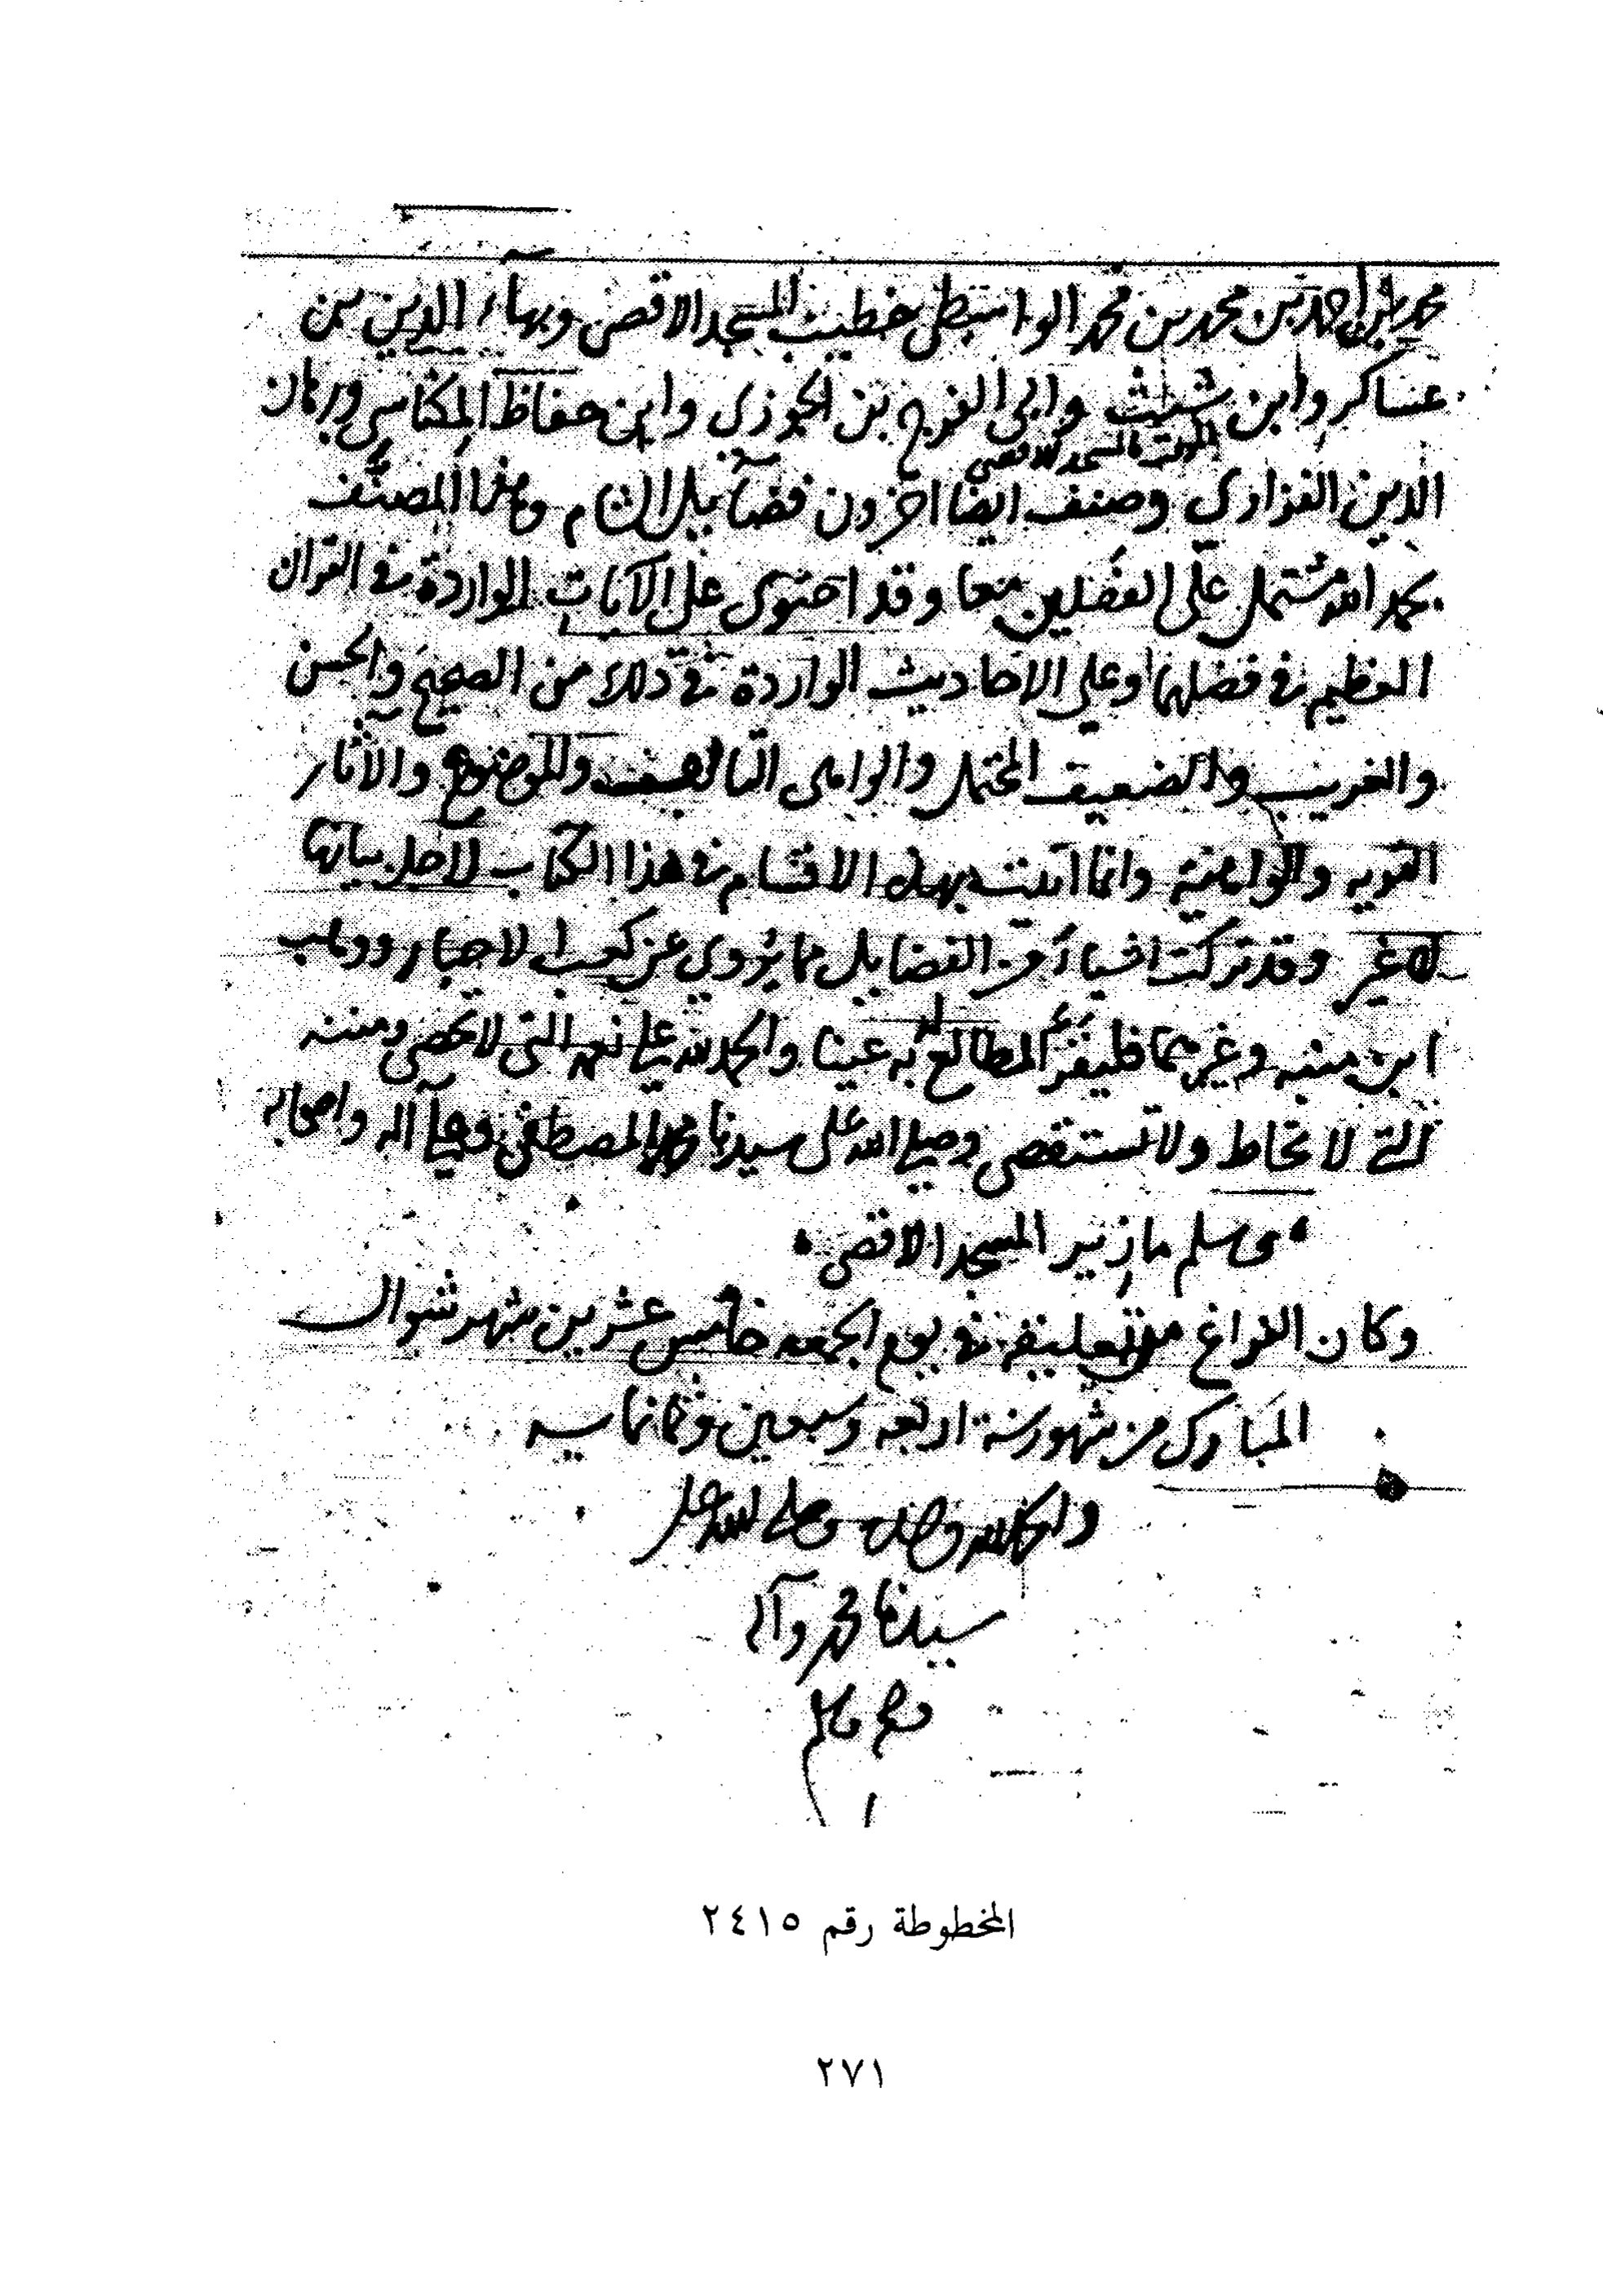 محمد بن احمد بن محمد بن محمد الواسطى خطيب المسجد الاقصى وبهاء الدين بن
عساكر وابن شيث وابى الفرج بن الجوزى وابن حفاظ المكناسى وبرهان
المسجد الاقصى
الدين الفزارى وصنف ايضا اخرون فضآيل الشام وهذا المصنف
بحمد الله مشتمل على الفضلين معا وقد احتوى على الآيات الواردة فى القرآن
العظيم فى فضلهما وعلى الاحاديث الواردة فى ذلك من الصحيح والحسن
والغريب والضعيف المحتمل والواهى والموضوع والآثار
القويه والواهية وانما اتيت بهذه الاقسام فى هذا الكتاب لاجل بيانها
لا غير وقد تركت اشيآء من الفضايل مما يروى عن كعب الاحبار ووهب
ابن منبه وغيرهما فليقر المطالع له به عينا والحمد لله على نعمه التى لا تحصى ومننه
التى لا تحاط ولا تستقصى وصلى الله على سيدنا محمد المصطفى وعلى آله واصحابه
وسلم المسجد الاقصى
وكان الفراغ من تعليقه فى يوم الجمعه خامس عشرين شهر شوال
المبارك من شهور سنة اربعه وسبعين وثمانمايه
والحمد لله وحده وصلى الله على
سيدنا محمد وآله
وصحبه وسلم
المخطوطة رقم ٢٤١٥
٢٧١